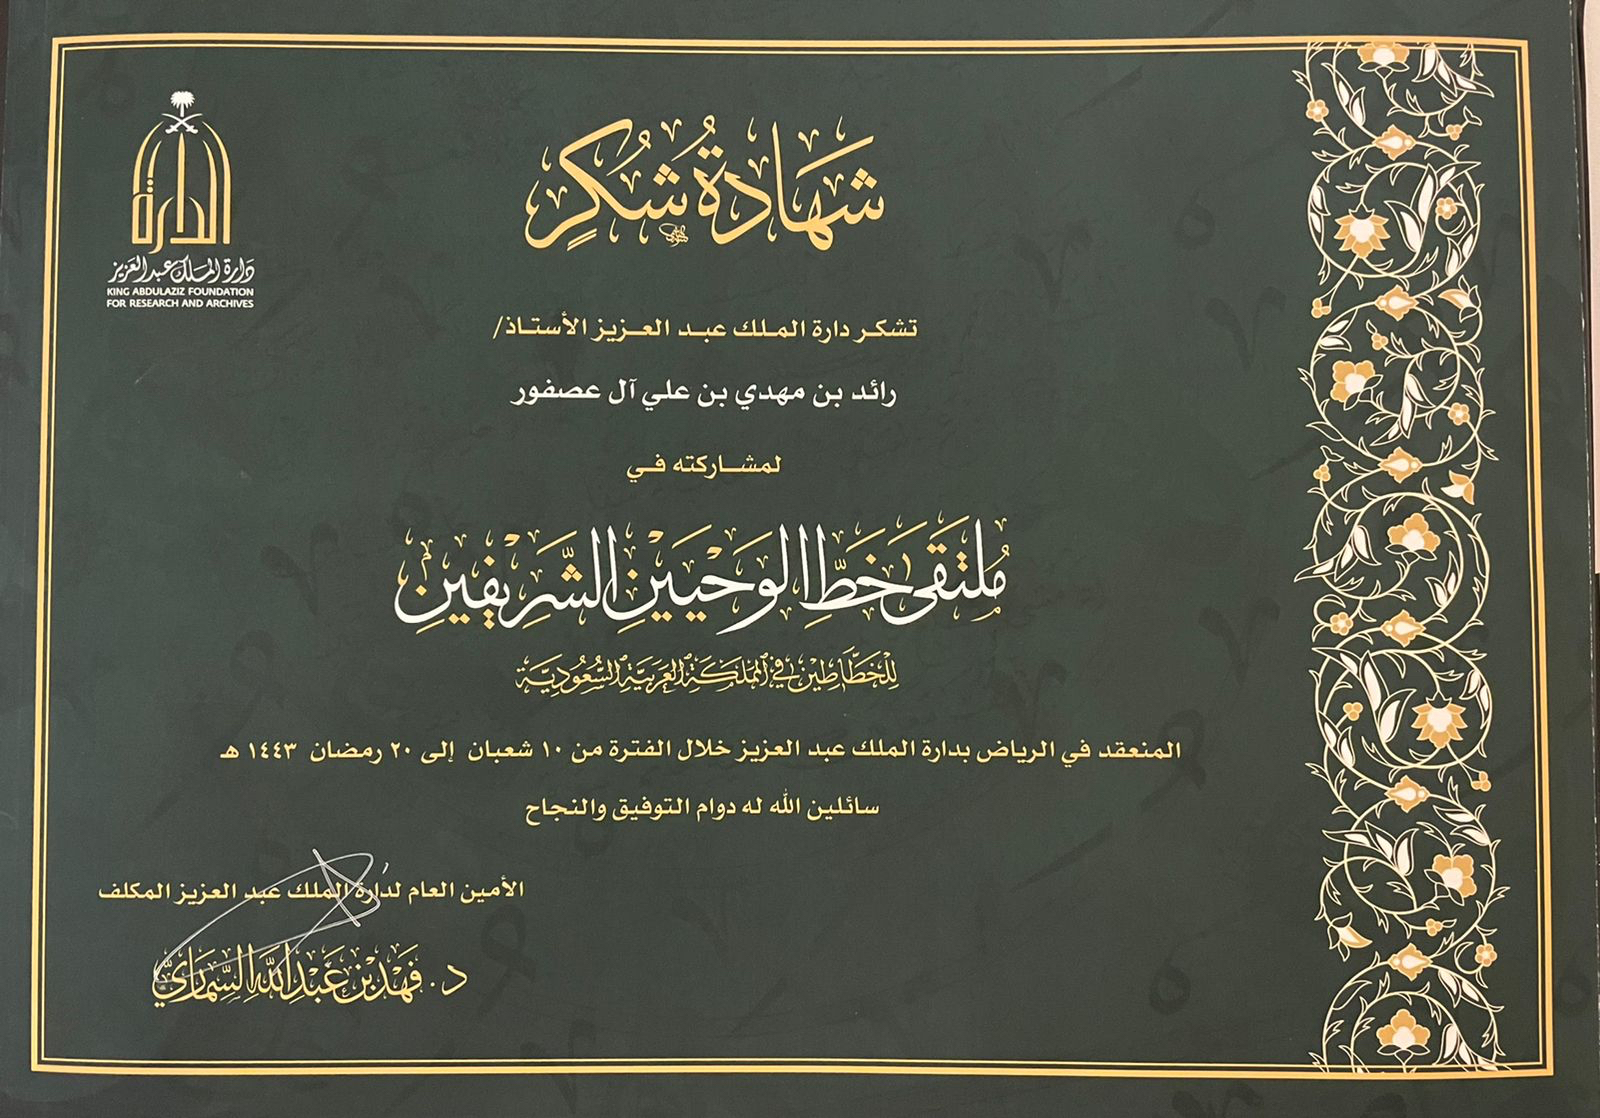 الدارة
دارة الملك عبد العزيز
KING ABDULAZIZ FOUNDATION
FOR RESEARCH AND ARCHIVES
شَهَادَةُ شُكْرٍ
تشكر دارة الملك عبد العزيز الأستاذ/
رائد بن مهدي بن علي آل عصفور
لمشاركته في
مُلتقى خَطِّ الوَحيَيْنِ الشَّرِيْفَيْنِ
لِلخَطَّاطِيْنَ فِي المَمْلَكَةِ العَرَبِيَّةِ السُّعُودِيَّةِ
المنعقد في الرياض بدارة الملك عبد العزيز خلال الفترة من ١٠ شعبان إلى ٢٠ رمضان ١٤٤٣ هـ
سائلين الله له دوام التوفيق والنجاح
الأمين العام لدارة الملك عبد العزيز المكلف
د. فَهْد بْن عَبْدِ اللَّهِ السِّمَارِيّ